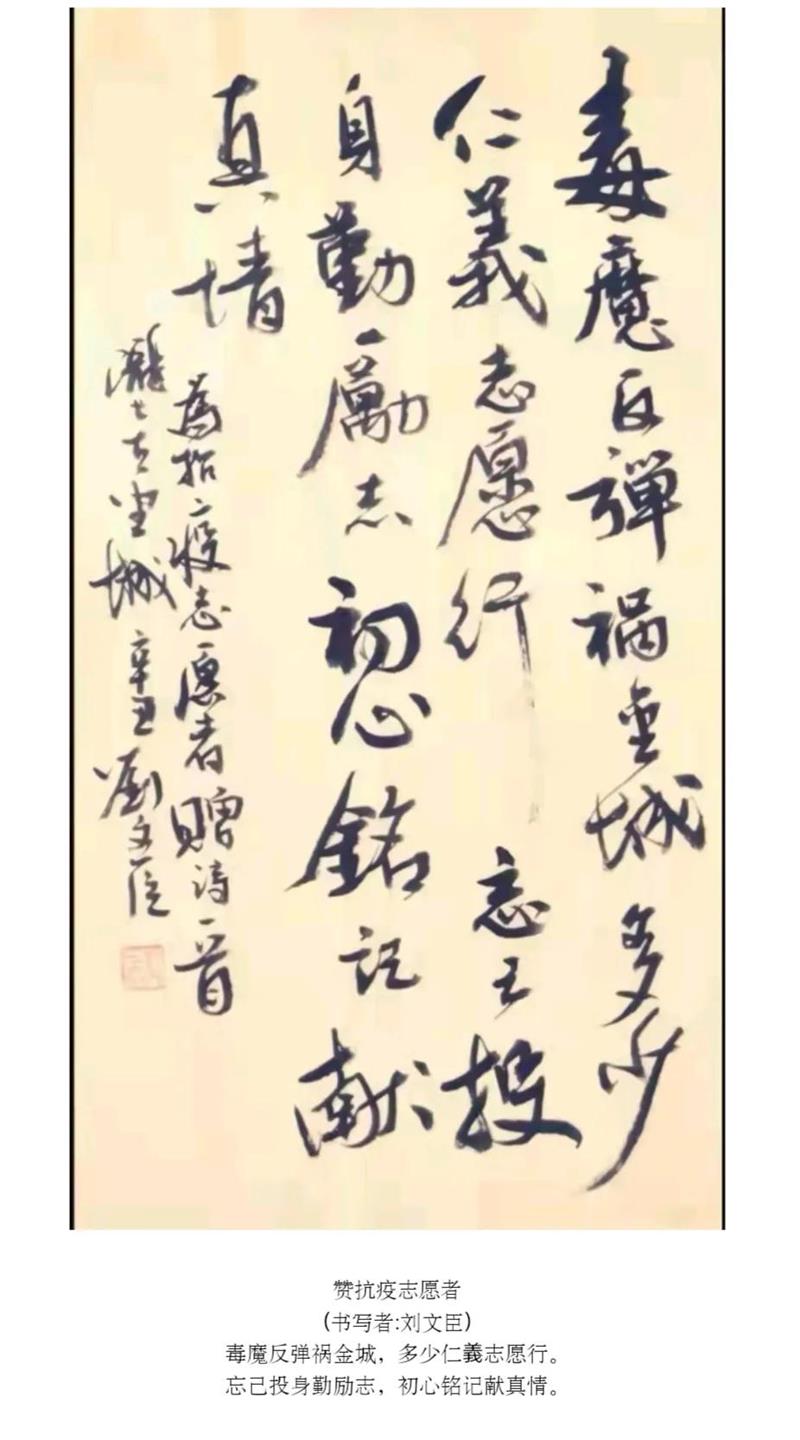 毒魔反彈禍金城多少
仁義志愿行忘己投
身勤勵志初心銘記献
真情
為抗疫志愿者贈诗一首
城辛丑劉文臣
赞抗疫志愿者
(书写者:刘文臣)
毒魔反弹祸金城，多少仁義志愿行。
忘己投身勤励志，初心铭记献真情。